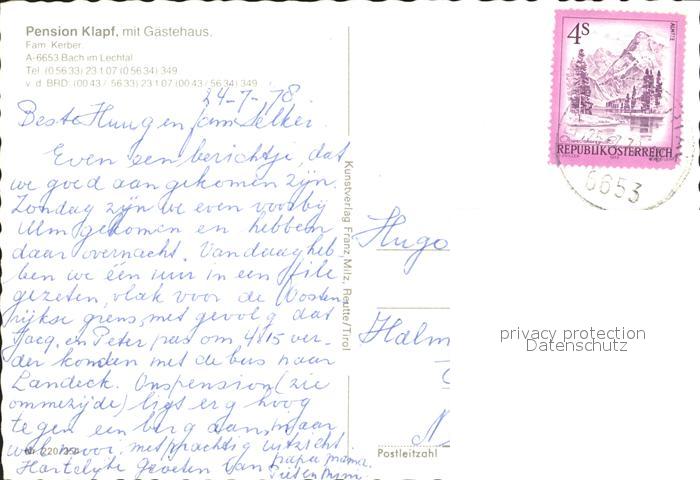 Pension Klapf, mit Gästehaus.
Fam. Kerber.
A-6653 Bach im Lechtal
Tel. (0 56 33) 23 1 07 (0 56 34) 349
v. d. BRD: (00 43 / 56 33) 23 1 07 (00 43 / 56 34) 349
24-7-'78
Beste en fam
Even een berichtje, dat
we goed aangekomen zijn.
Zondag zijn we even voorbij
Ulm gekomen en hebben
daar overnacht. Vandaag heb-
ben we één uur in een file
gezeten, vlak voor de Oosten
rijkse grens, met gevolg dat
Jacq. en Peter pas om 4.15 ver-
der konden met de bus naar
Landeck. Ons pension (zie
ommezijde) ligt erg hoog
tegen een berg aan, maar
wel mooi, met prachtig uitzicht.
Hartelijke Groeten van papa mama.
Piet en
Nr. 220/
Kunstverlag Franz Milz, Reutte/Tirol
4S
REPUBLIK ÖSTERREICH
6653
Hugo
Halm
N
Postleitzahl
privacy protection
Datenschutz